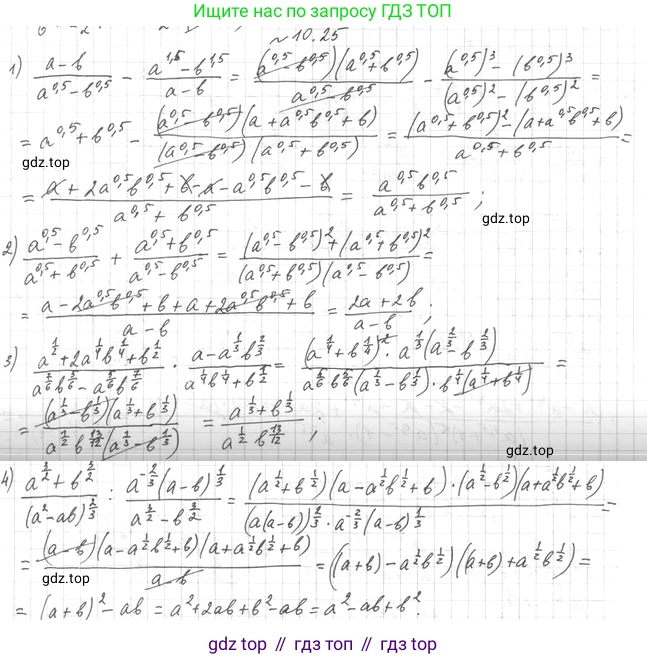 Ищите нас по запросу ГДЗ ТОП
№ 10.25
1) (a-b)/(a^0,5-b^0,5) - (a^1,5-b^1,5)/(a-b) = ((a^0,5-b^0,5)(a^0,5+b^0,5))/(a^0,5-b^0,5) - ((a^0,5)^3-(b^0,5)^3)/((a^0,5)^2-(b^0,5)^2) =
= a^0,5+b^0,5 - ((a^0,5-b^0,5)(a+a^0,5b^0,5+b))/((a^0,5-b^0,5)(a^0,5+b^0,5)) = ((a^0,5+b^0,5)^2-(a+a^0,5b^0,5+b))/(a^0,5+b^0,5) =
gdz.top
= (a+2a^0,5b^0,5+b-a-a^0,5b^0,5-b)/(a^0,5+b^0,5) = (a^0,5b^0,5)/(a^0,5+b^0,5);
gdz.top
2) (a^0,5-b^0,5)/(a^0,5+b^0,5) + (a^0,5+b^0,5)/(a^0,5-b^0,5) = ((a^0,5-b^0,5)^2+(a^0,5+b^0,5)^2)/((a^0,5+b^0,5)(a^0,5-b^0,5)) =
= (a-2a^0,5b^0,5+b+a+2a^0,5b^0,5+b)/(a-b) = (2a+2b)/(a-b);
gdz.top
3) (a^1/2+2a^1/4b^1/4+b^1/2)/(a^2/6b^5/6-a^5/6b^7/6) · (a-a^1/3b^2/3)/(a^1/4b^1/4+b^1/2) = ((a^1/4+b^1/4)^2·a^1/3(a^2/3-b^2/3))/(a^5/6b^5/6(a^1/3-b^1/3)·b^1/4(a^1/4+b^1/4)) =
= ((a^1/3-b^1/3)(a^1/3+b^1/3))/(a^1/2b^13/12(a^1/3-b^1/3)) = (a^1/3+b^1/3)/(a^1/2b^13/12);
gdz.top
4) (a^3/2+b^3/2)/((a^2-ab)^2/3) : (a^-2/3(a-b)^1/3)/(a^3/2-b^3/2) = ((a^1/2+b^1/2)(a-a^1/2b^1/2+b)·(a^1/2-b^1/2)(a+a^1/2b^1/2+b))/((a(a-b))^2/3·a^-2/3(a-b)^1/3) =
= ((a-b)(a-a^1/2b^1/2+b)(a+a^1/2b^1/2+b))/(a-b) = ((a+b)-a^1/2b^1/2)((a+b)+a^1/2b^1/2) =
gdz.top
= (a+b)^2-ab = a^2+2ab+b^2-ab = a^2-ab+b^2.
gdz top // гдз топ // gdz top